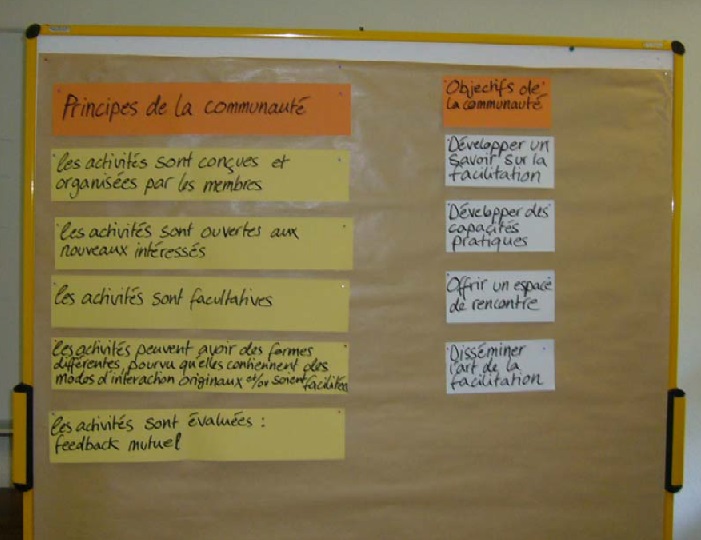 Principes de la communauté
les activités sont conçues et
organisées par les membres
les activités sont ouvertes aux
nouveaux intéressés
les activités sont facultatives
les activités peuvent avoir des formes
différentes, pourvu qu'elles contiennent des
modes d'interaction originaux et/ou soient facilitées
les activités sont évaluées :
feedback mutuel
Objectifs de
la communauté
Développer un
savoir sur la
facilitation
Développer des
capacités
pratiques
Offrir un espace
de rencontre
Disséminer
l'art de la
facilitation